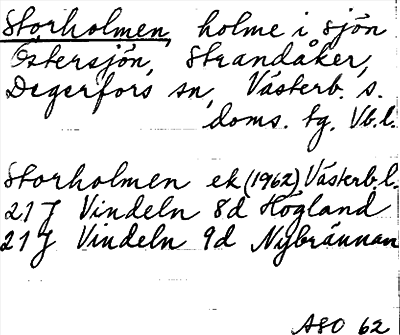 Storholmen, holme i sjön
Östersjön, Strandåker,
Degerfors sn, Västerb. s.
doms. tg, Vb.l.
Storholmen ek (1962) Västerb.l.
21 J Vindeln 8d Högland
21 J Vindeln 9d Nybrännan
ASO 62